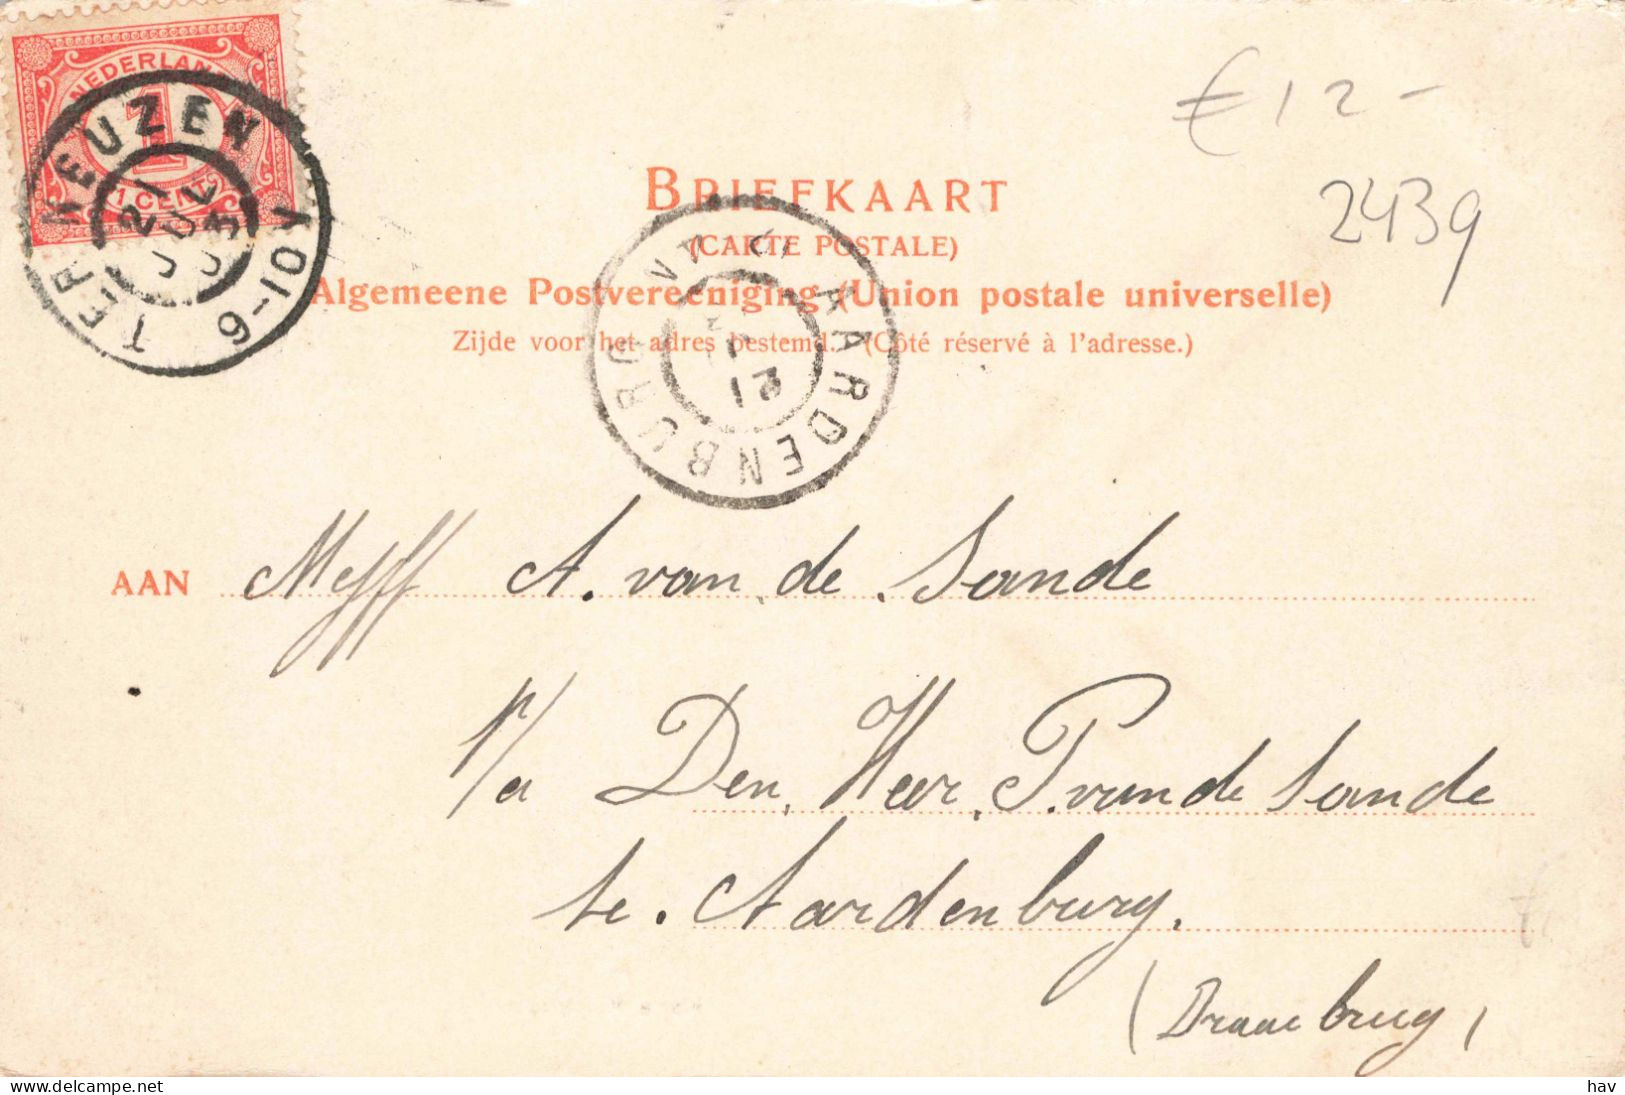 NEDERLAND
1
1 CENT
TERNEUZEN
21 JUL 03
6-10V
€ 12-
2439
BRIEFKAART
(CARTE POSTALE)
Algemeene Postvereeniging (Union postale universelle)
Zijde voor het adres bestemd. (Côté réservé à l'adresse.)
AARDENBURG
21
AAN Mejff A. van de Sande
p/a Den Heer P. van de Sande
te Aardenburg.
(Draaibrug)
delcampe.net
hav